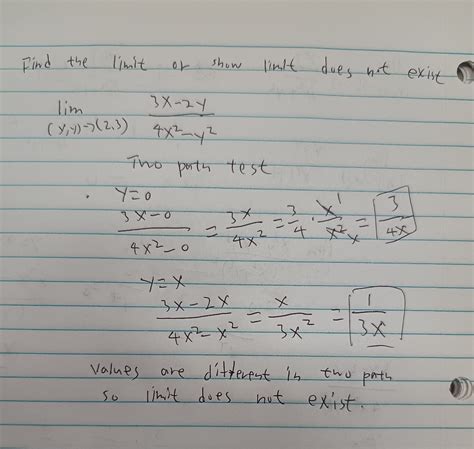 Find the limit or show limit does not exist
lim (x,y)→(2,3) 3x-2y / 4x²-y²
Two path test
y=0
3x-0 / 4x²-0 = 3x / 4x² = 3/4 · x¹ / x² x = 3 / 4x
y=x
3x-2x / 4x²-x² = x / 3x² = 1 / 3x
values are different in two path
so limit does not exist.